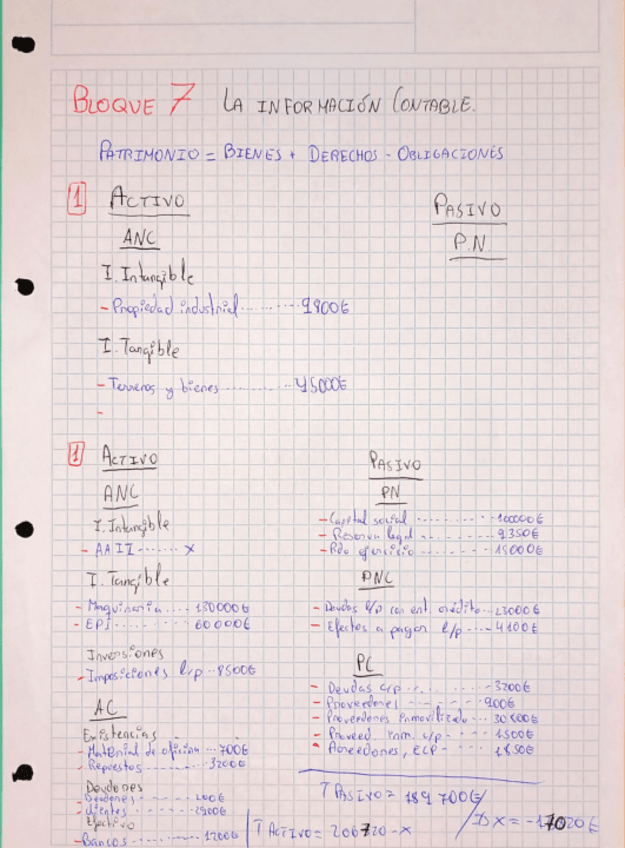 BLOQUE 7 LA INFORMACIÓN CONTABLE.
PATRIMONIO = BIENES + DERECHOS - OBLIGACIONES
1 ACTIVO
PASIVO
ANC
P.N.
I. Intangible
- Propiedad industrial ........ 9900€
I. Tangible
- Terrenos y bienes ......... 45000€
-
1 ACTIVO
ANC
I. Intangible
- AAII ....... x
I. Tangible
- Maquinaria .... 130000€
- EPI ........ 60000€
Inversiones
- Imposiciones l/p .. 8500€
AC
Existencias
- Material de oficina ... 700€
- Repuestos ........ 3200€
Deudores
- Deudores
- Clientes
Efectivo
- Bancos
PASIVO
PN
- Capital social ......... 100000€
- Reserva legal ........ 9350€
- Rdo ejercicio ........ 15000€
PNC
- Deudas l/p con ent. crédito .. 23000€
- Efectos a pagar l/p ..... 4100€
PC
- Deudas c/p ........ 3200€
- Proveedores ........ 900€
- Proveedores inmovilizado
- Proveed. inm. c/p ..... 1500€
- Acreedores,
T PASIVO = 189 700€
T ACTIVO = 206720 - x
x = -17020€